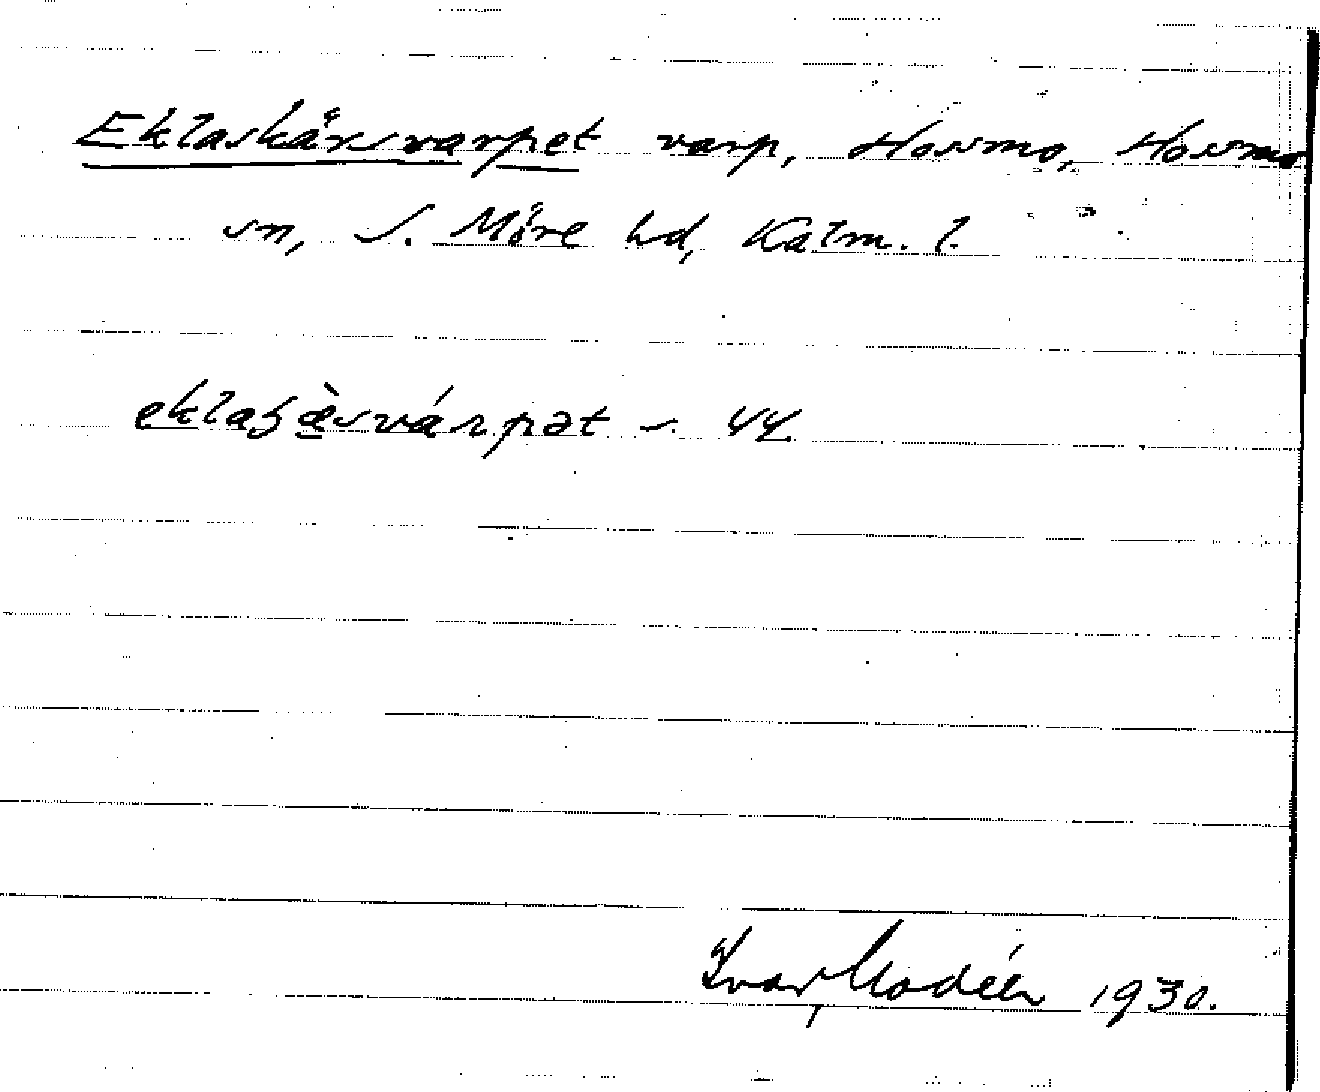 Eklaskärsvarpet varp, Hossmo, Hossmo
sn, S. Möre hd, Kalm. l.
s. 44.
Ivar Modéer 1930.